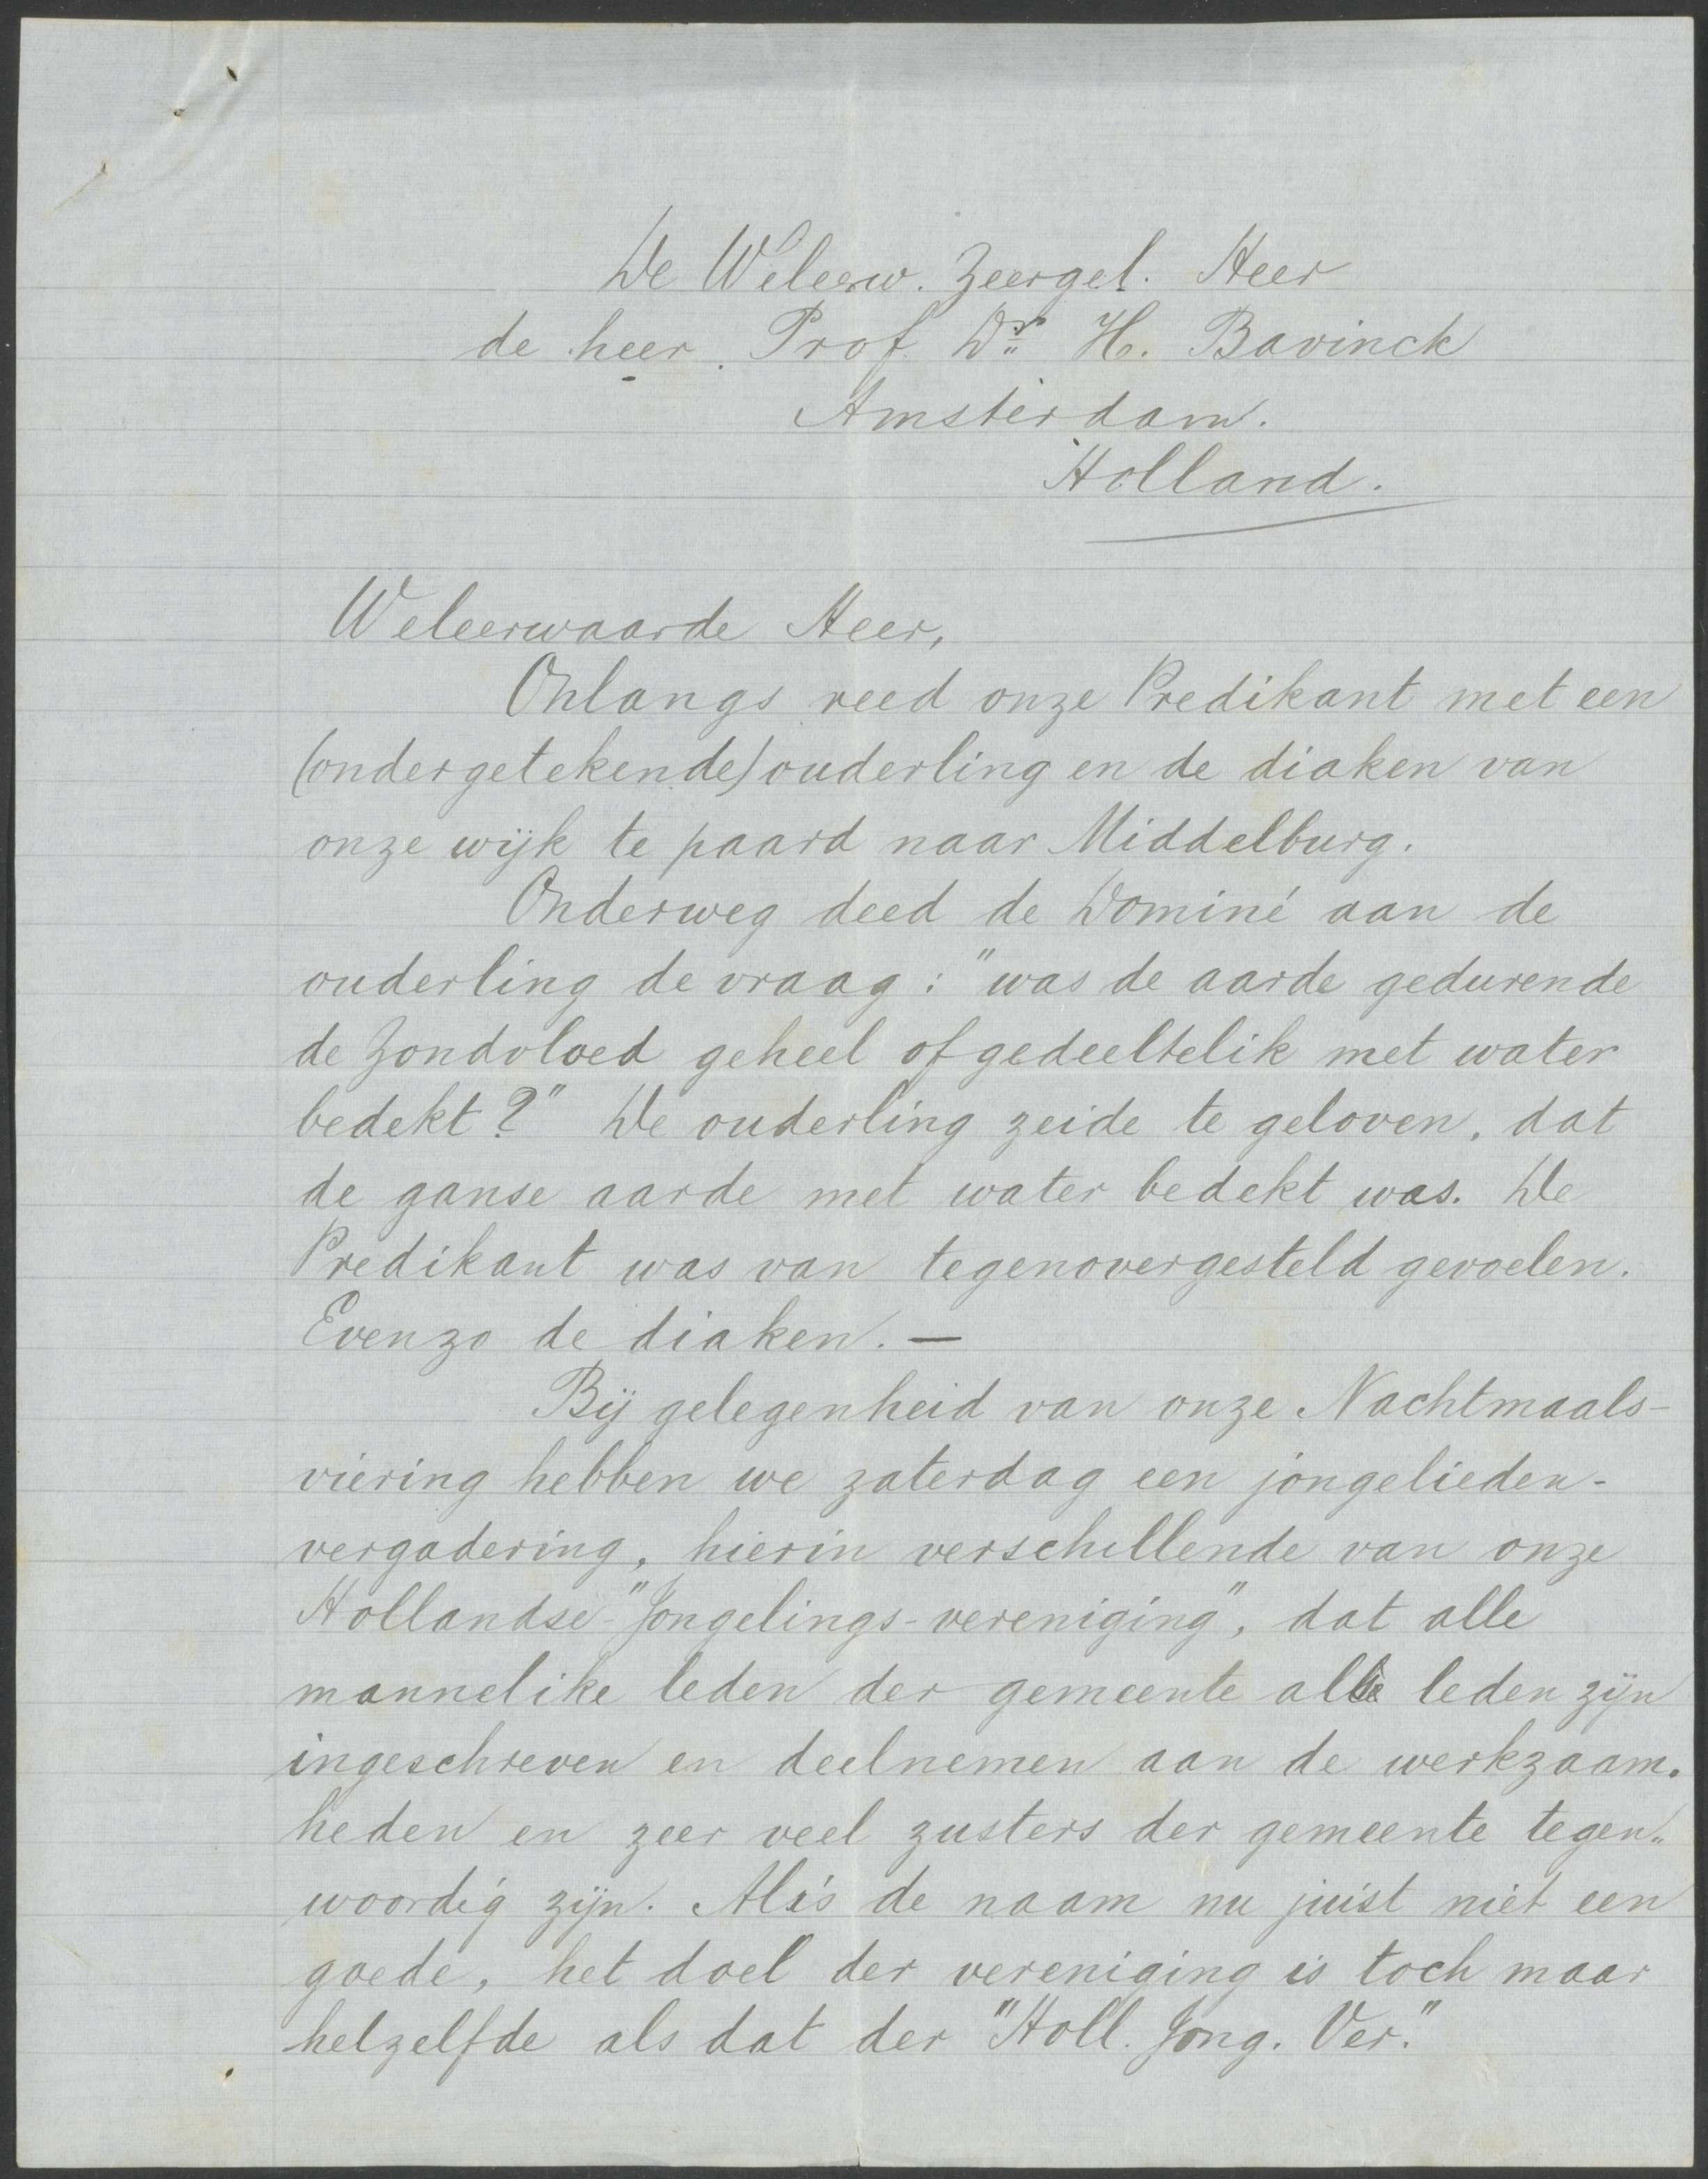 De Weleerw. Zeergel. Heer
de heer. Prof. Dr. H. Bavinck
Amsterdam.
Holland.
Weleerwaarde Heer,
Onlangs reed onze Predikant met een
(ondergetekende) ouderling en de diaken van
onze wijk te paard naar Middelburg.
Onderweg deed de Dominé aan de
ouderling de vraag: "was de aarde gedurende
de Zondvloed geheel of gedeeltelik met water
bedekt?" De ouderling zeide te geloven, dat
de ganse aarde met water bedekt was. De
Predikant was van tegenovergesteld gevoelen.
Evenzo de diaken. —
Bij gelegenheid van onze Nachtmaals-
viering hebben we zaterdag een jongelieden-
vergadering, hierin verschillende van onze
Hollandse-"Jongelings-vereniging", dat alle
mannelike leden der gemeente als leden zijn
ingeschreven en deelnemen aan de werkzaam-
heden en zeer veel zusters der gemeente tegen-
woordig zijn. Al is de naam nu juist niet een
goede, het doel der vereniging is toch maar
hetzelfde als dat der "Holl. Jong. Ver."